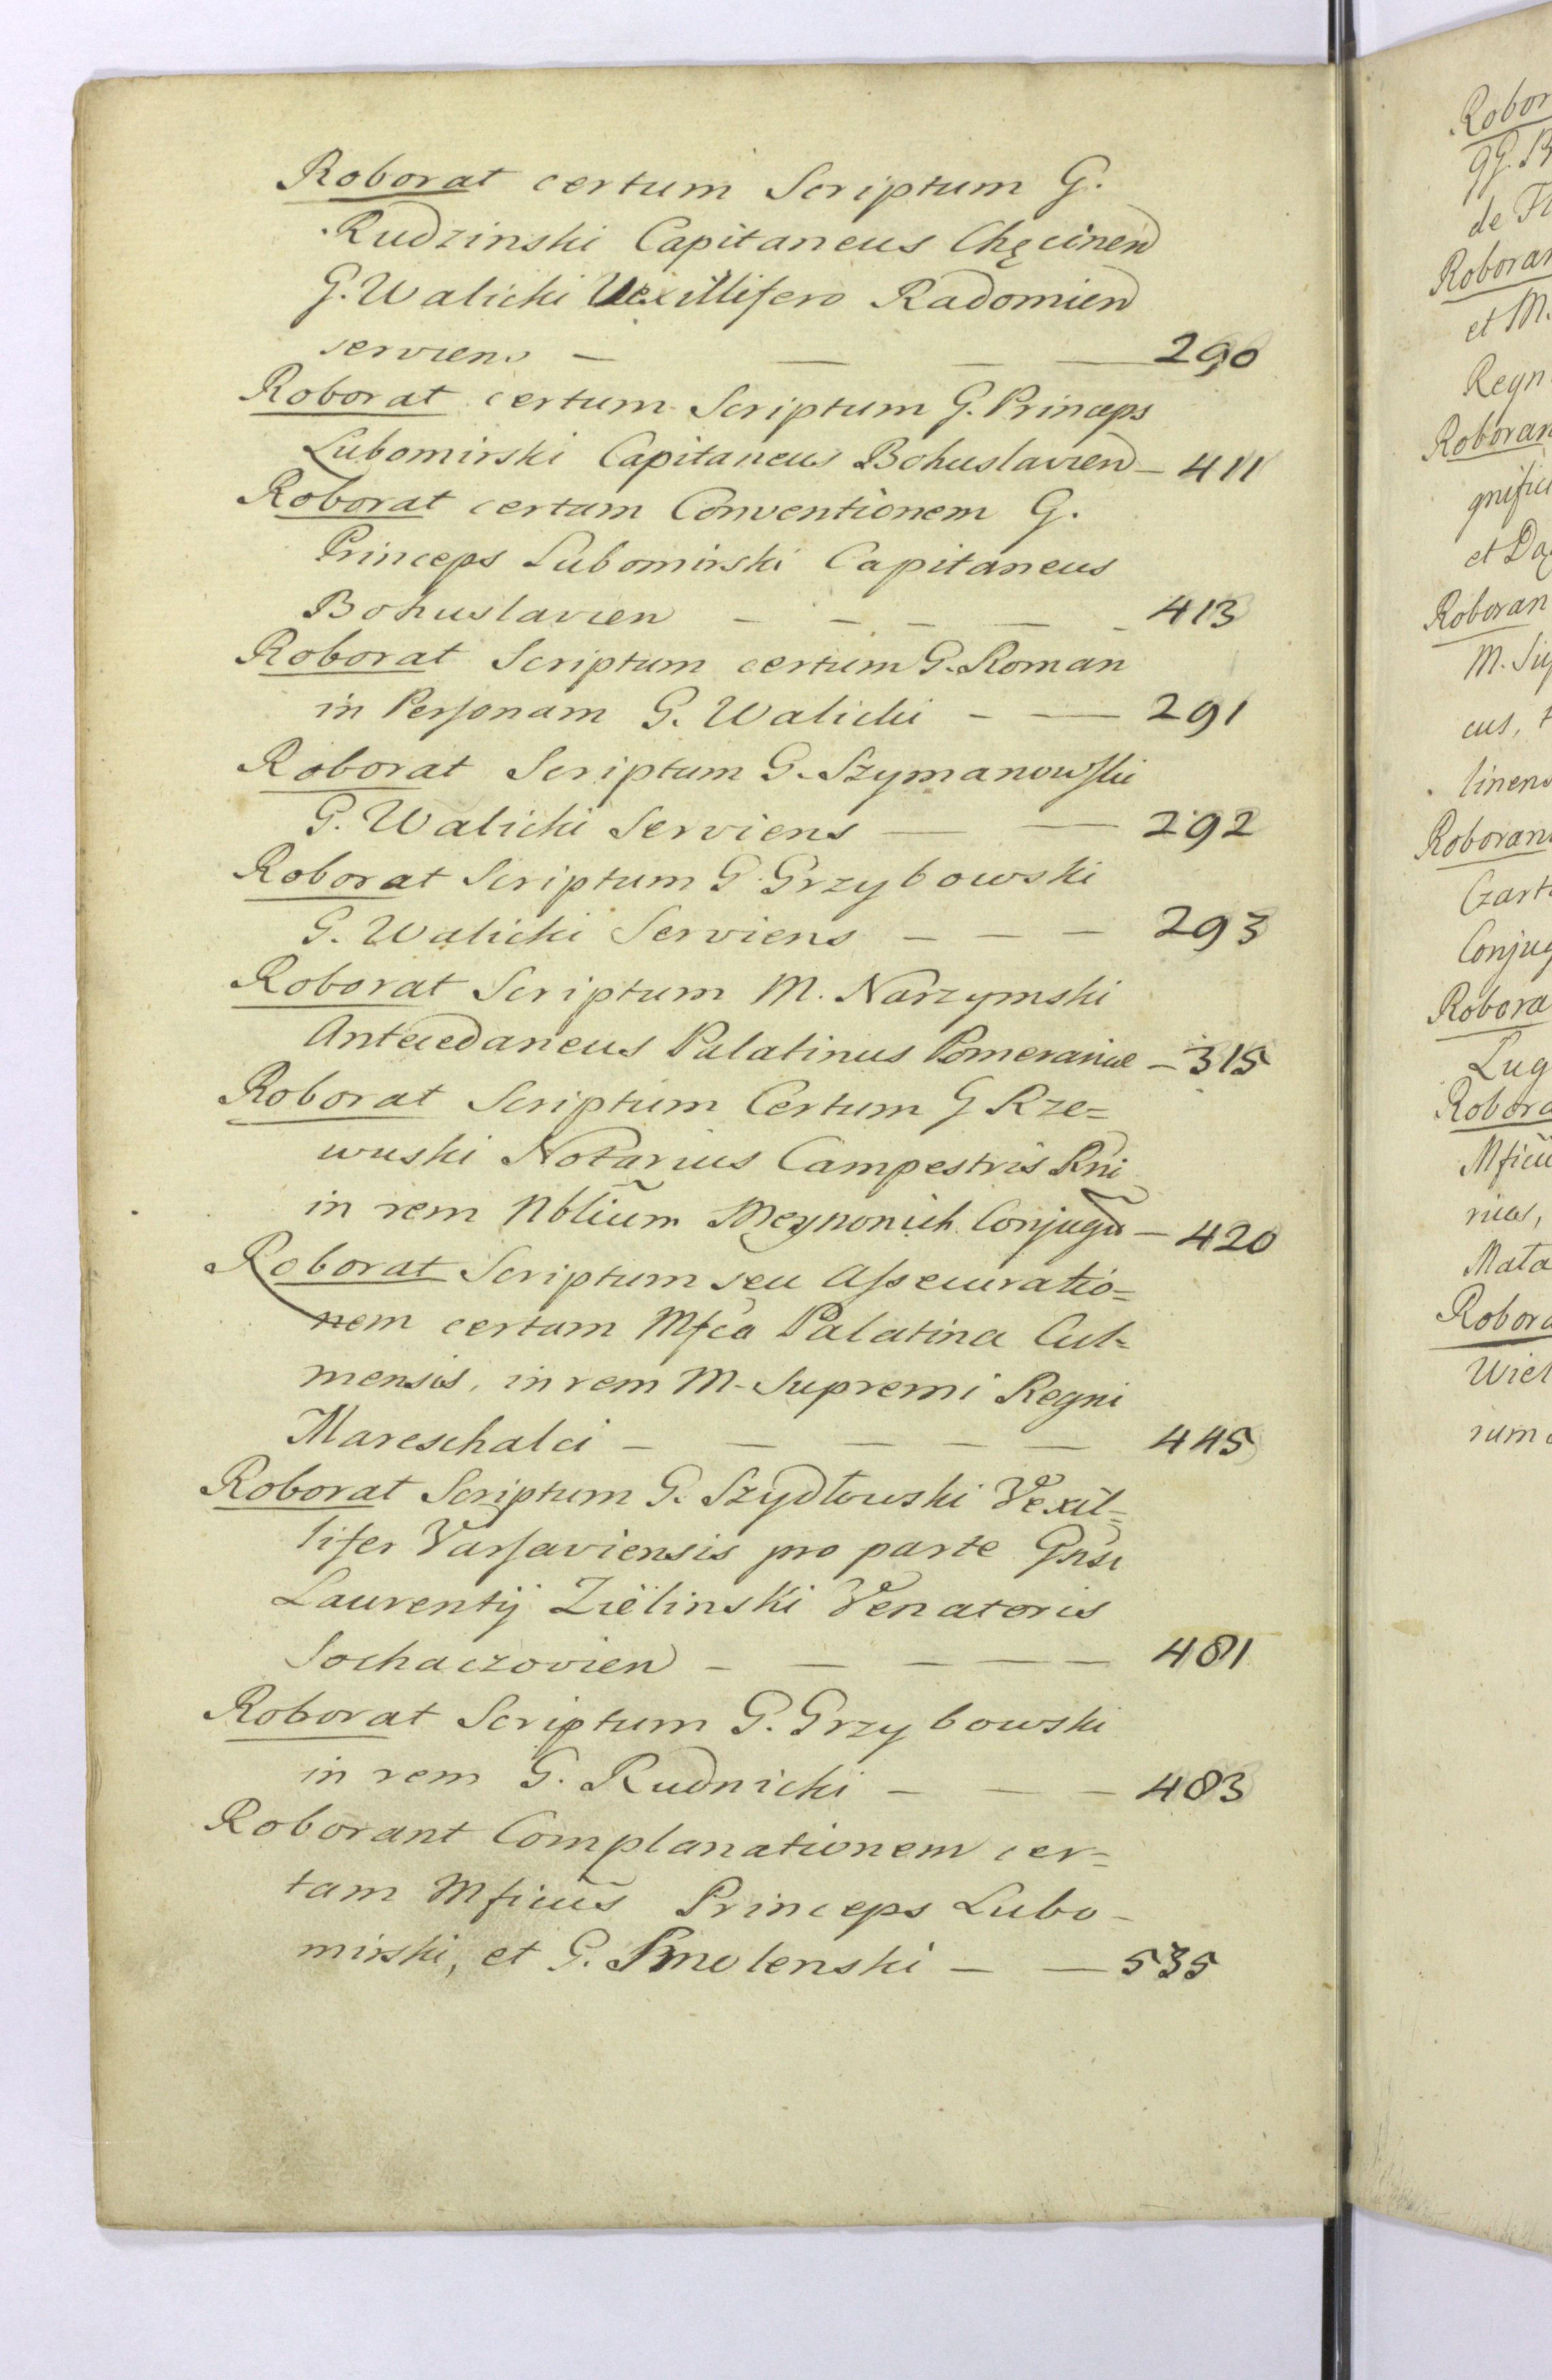 Roborat certum Scriptum G.
Rudzinski Capitaneus Chęcinen
G. Walicki Vexillifero Radomien
serviens — — — — 290
Roborat certum Scriptum G. Princeps
Lubomirski Capitaneus Bohuslavien — 411
Roborat certam Conventionem G.
Princeps Lubomirski Capitaneus
Bohuslavien — — — — - 413
Roborat Scriptum certum G. Roman
in Personam G. Walicki — — 291
Roborat Scriptum G. Szymanowski
G. Walicki Serviens — — 292
Roborat Scriptum G. Grzybowski
G. Walicki Serviens — — — 293
Roborat Scriptum M. Narzymski
Antecedaneus Palatinus Pomeraniae — 315
Roborat Scriptum Certum G Rze=
wuski Notarius Campestris Rni
in rem Nbliũm Meynonich Conjugũ — 420
Roborat Scriptum seu Assecuratio=
nem certam Mfca Palatina Cul=
mensis, in rem M. Supremi Regni
Mareschalci — — — — — 445
Roborat Scriptum G. Szydłowski Vexil=
lifer Varsaviensis pro parte Gnsi
Laurentij Zielinski Venatoris
Sochaczovien — — — — — 481
Roborat Scriptum G. Grzybowski
in rem G. Rudnicki — — — 483
Roborant Complanationem cer=
tam Mficus Princeps Lubo-
mirski, et G. Smolenski — — 535
Robor
gg. B
de
Roboran
et M.
Regn
Roboran
gnifici
et Da
Roboran
M. Su
cus,
linens
Roboran
Czart
Conjug
Robora
Lug
Robora
Mficu
ricus,
Mata
Robora
Wiel
rum